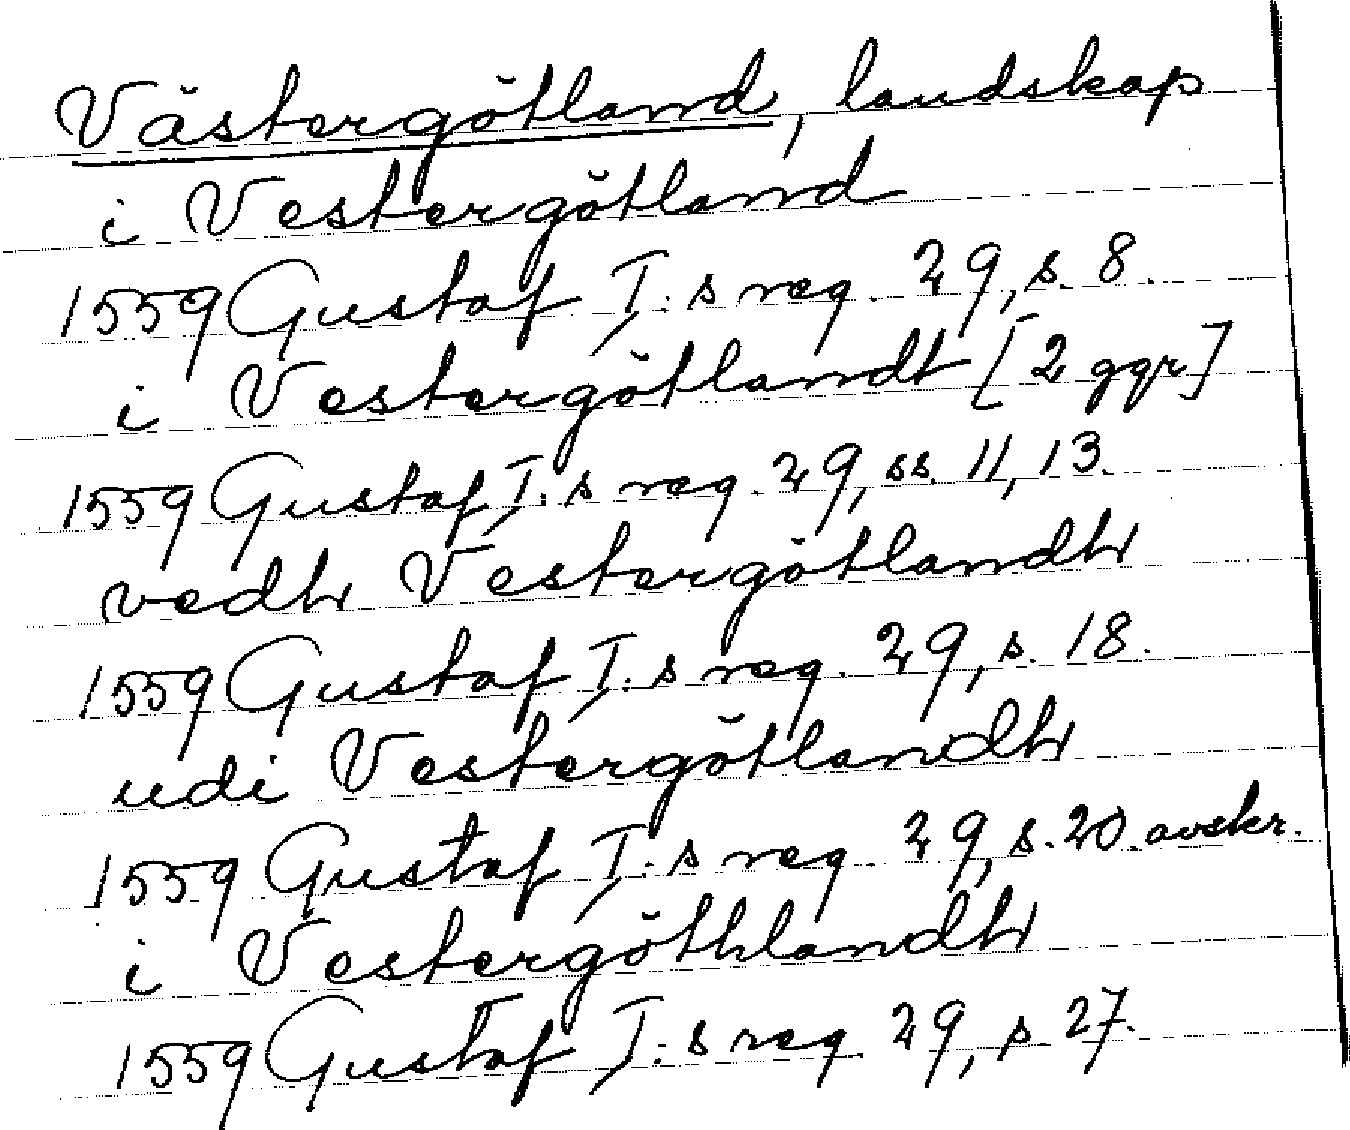 Västergötland, landskap
i Vestergötland
1559 Gustaf I:s reg. 29, s. 8.
i Vestergötlandt [2 ggr]
1559 Gustaf I:s reg. 29, ss. 11, 13.
vedh Vestergötlandh
1559 Gustaf I:s reg. 29, s. 18.
udi Vestergötlandh
1559 Gustaf I:s reg. 29, s. 20. avskr.
i Vestergöthlandh
1559 Gustaf I:s reg. 29, s 27.